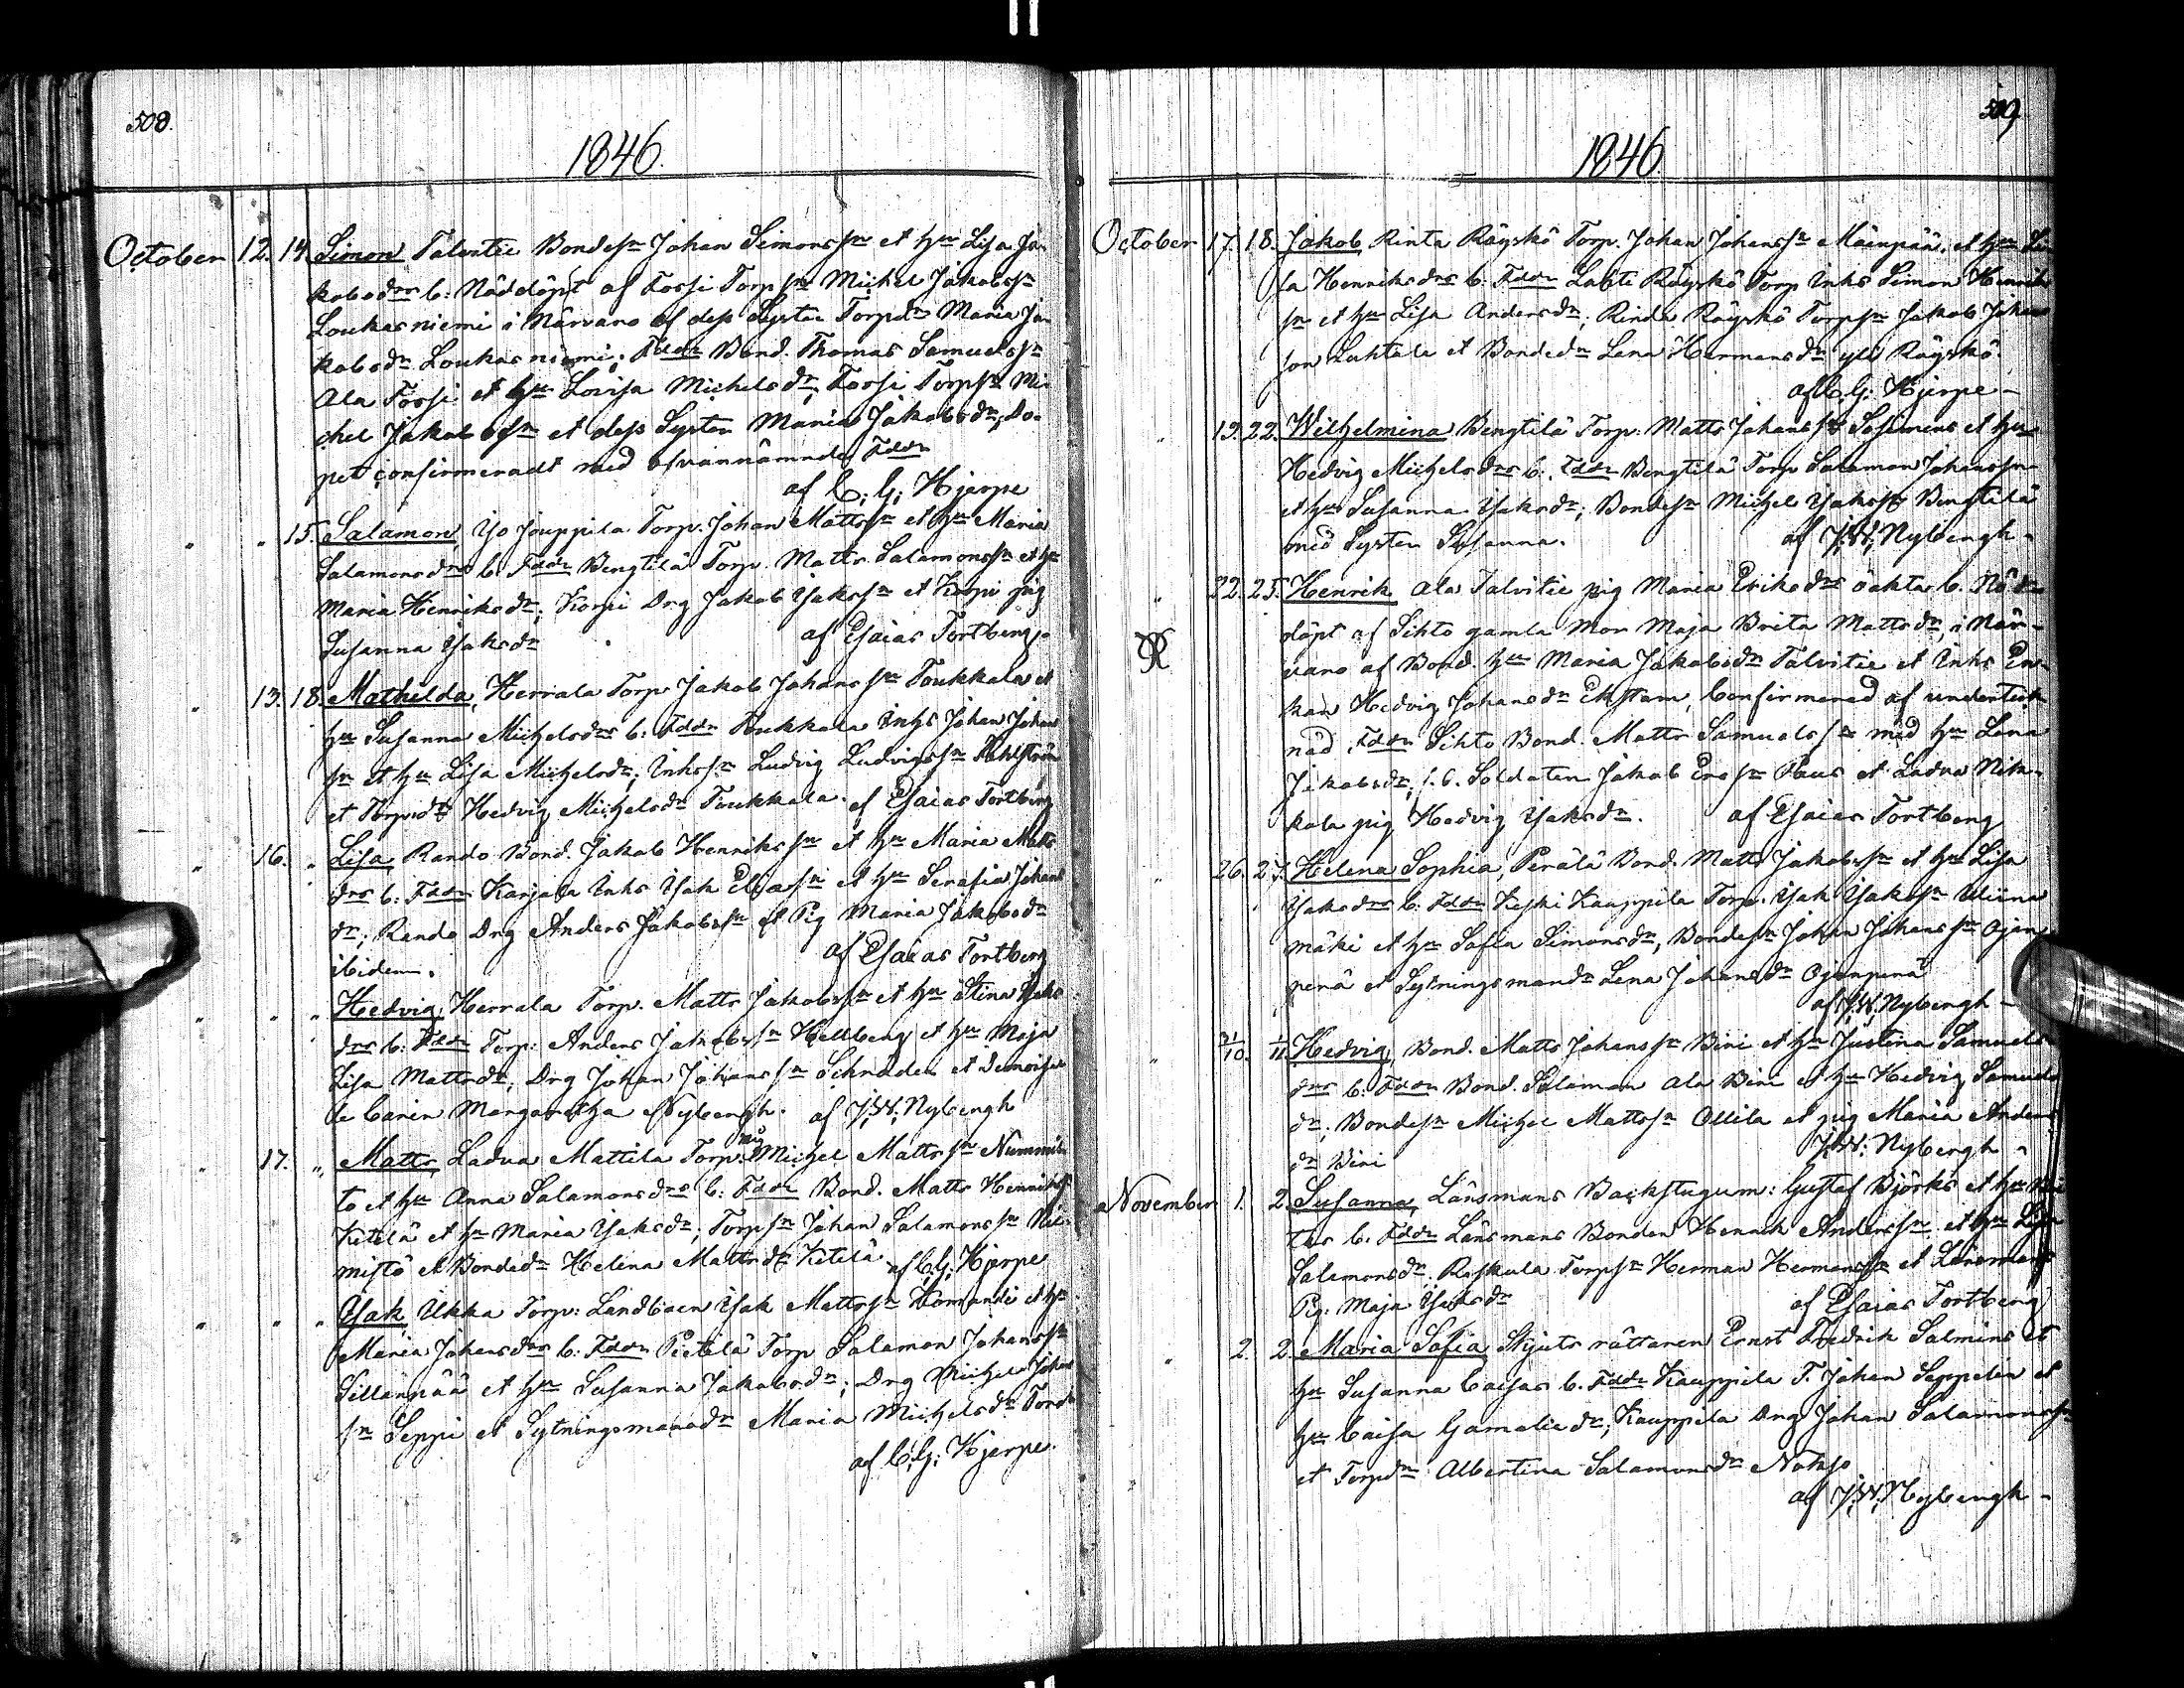 508.
1846.
October 12. 14. Simon Talvitie Bondesn Johan Simonssn et hu Lisa Ja-
kobsdrs b: Nöddöpt af Fossi Torpsn Michel Jakobssn
Loukasniemi i Närvaro af dess Syster Torpdr Maria Ja-
kobsdr Loukasniemi; Fddr Bond. Thomas Samuelssn
Ala Fossi et hu Lovisa Michelsdr, Fossi Torpsn Mi-
chel Jakobssn et dess Syster Maria Jakobsdr, Do-
pet confirmeradt med ofvannämnde Fddr
af C. G. Hjerpe
" " 15. Salamon, Yso Jouppila Torp. Johan Mattssn et hu Maria
Salamonsdrs b. Fddr Bengtilä Torp. Matts Salamonssn et hu
Maria Henriksdr; Korpi Drg Jakob Isakssn et Korpi pig
Susanna Isaksdr af Esaias Tortberg
" 13. 18. Mathilda, Herrala Torp Jakob Johanssn Toukkala et
hu Susanna Michelsdrs b: Fddr Toukkala Inhs Johan Johans
sn et hu Lisa Michelsdr; Inhssn Ludvig Ludvigssn
et Torpdr Hedvig Michelsdr Toukkala. af Esaias Tortberg
" 16. " Lisa, Rando Bond. Jakob Henrikssn et hu Maria Matts
drs b: Fddr Karjala Inhs Isak Eliassn et hu Serafia Johans
dr; Rando Drg Anders Jakobssn et Pig Maria Jakobsdr
ibidem. af Esaias Tortberg
" " " Hedvig, Herrala Torp. Matts Jakobssn et hu Stina Isaks
drs b: Fddr Torp: Anders Jakobssn Hellberg et hu Maja
Lisa Mattsdr; Drg Johan Johanssn Schröder et Demoisel
le Carin Margaretha Nybergh. af J. W. Nybergh
" 17. " Matts, Ladva Mattila Torp. Michel Mattssn Nummis
to et hu Anna Salamonsdrs b: Fddr Bond. Matts Henrikss
Ketelä et hu Maria Isaksdr; Torpsn Johan Salamonssn
mistö et Bondedr Helena Mattsdr Ketelä af C. G. Hjerpe
" " " Isak, Ukka Torp: Landboen Isak Mattssn et hu
Maria Johansdrs b: Fddr Pietilä Torp Salamon Johanssn
Sillanpää et hu Susanna Jakobsdr; Drg Michel Johans
sn Seppi et Sytningsmansdr Maria Michelsdr
af C. G. Hjerpe.
509
1846.
October 17. 18. Jakob, Rinta Röyskö Torp. Johan Johanssn Mäenpää, et hu Li-
sa Henriksdrs b: Fddr Lahti Röyskö Torp Inhs Simon Henriks
sn et hu Lisa Andersdr; Rinda Röyskö Torpsn Jakob Johans
son Luhtala et Bondedr Lena Hermansdr yli Röyskö.
af C. G. Hjerpe -
" 19. 22. Wilhelmina Bengtilä Torp: Matts Johanssn et hu
Hedvig Michelsdrs b. Fddr Bengtilä Torp Salamon Johanssn
et hu Susanna Isaksdr; Bondesn Michel Isakssn Bengtilä
med Syster Susanna. af J. W. Nybergh -
" 22. 25. Henrik Ala Talvitie pig Maria Eriksdrs oäkta b. Nöd-
döpt af Sihto gamla Mor Maja Brita Mattsdr, i När-
varo af Bond. hu Maria Jakobsdr Talvitie et Inhs En-
kan Hedvig Johansdr Ekstam, Confirmerad af underteck-
nad. Fddr Sihto Bond. Matts Samuelssn med hu Lena
Jakobsdr; f.d. Soldaten Jakob Erssn Paus et Ladva Nik-
kola pig Hedvig Isaksdr. af Esaias Tortberg
" 26. 27. Helena Sophia, Perälä Bond. Matts Jakobssn et hu Lisa
Isaksdrs b. Fddr Keski Kauppila Torp. Isak Isakssn
mäki et hu Sofia Simonsdr, Bondesn Johan Johanssn Ojan-
perä et Sytningsmansdr Lena Johansdr Ojanperä
af J. W. Nybergh -
" 31/10. 1/11. Hedvig, Bond. Matts Johanssn Bini et hu Justina Samuels
drs b. Fddr Bond. Salamon Ala Bini et hu Hedvig Samuels
dr; Bondesn Michel Mattssn Ollila et pig Maria Anders
dr Bini J. W. Nybergh -
November 1. 2. Susanna, Länsmans Backstugum: Gustaf Björks et hu
b. Fddr Länsmans Bonden Henrik Anderssn et hu Lisa
Salamonsdr. Roskula Torpsn Herman Hermanssn et Länsmans
Pg: Maja Isaksdr af Esaias Tortberg
" 2. 2. Maria Sofia, Skjuts rättaren Ernst Fredrik Salmins et
hu Susanna Caisas b. Fddr Kauppila T. Johan Seppelin et
hu Caisa Gamaliedr; Kauppila Drg Johan Salamonssn
et Torpdr Albertina Salamonsdr
af J. W. Nybergh -